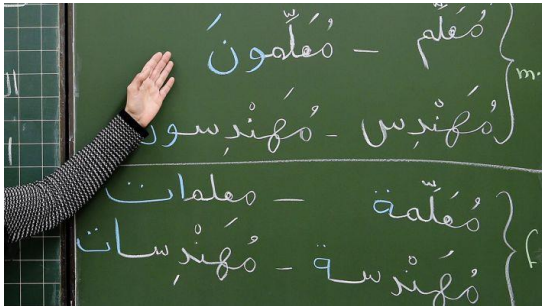 مُعَلِّم – مُعَلِّمُونَ
مُهَنْدِس - مُهَنْدِسون
m.
مُعَلِّمة – معلمات
مُهَنْدِسة - مُهَنْدِسات
f
ال